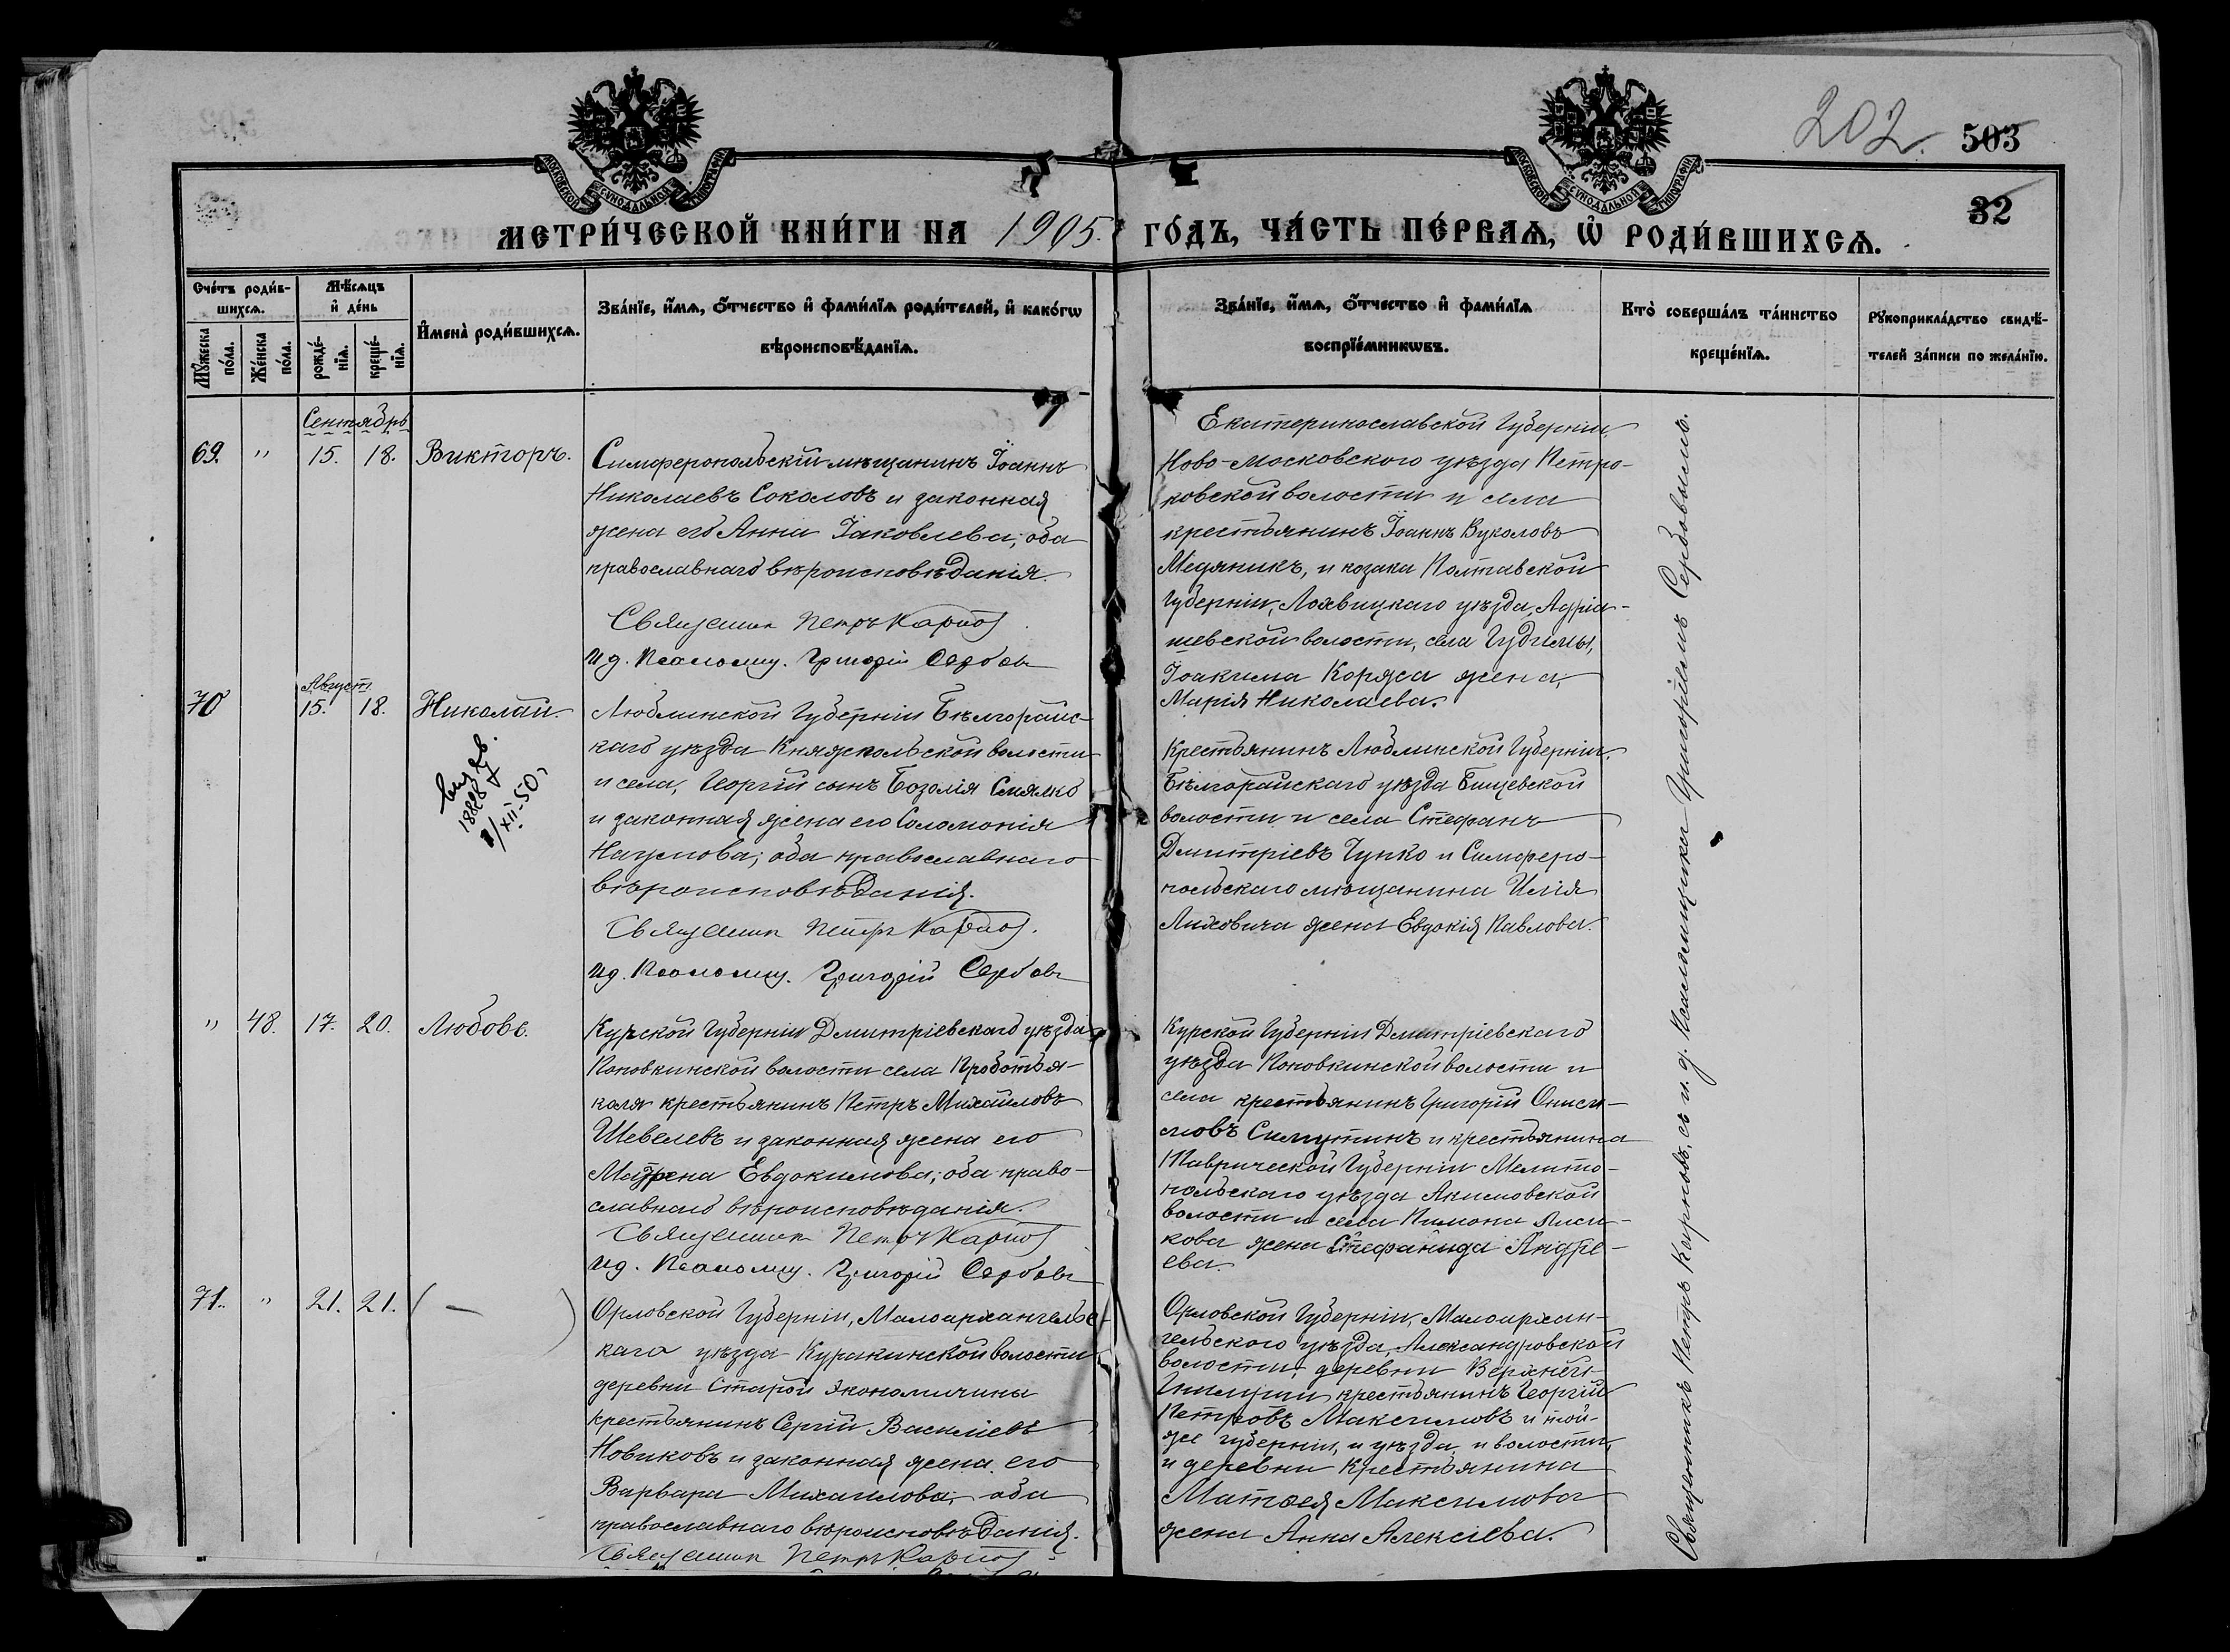 202. 503
32
МОСКОВСКОЙ СѴНОДАЛЬНОЙ ТИПОГРАФІИ
МОСКОВСКОЙ СѴНОДАЛЬНОЙ ТИПОГРАФІИ
МЕТРИ́ЧЕСКОЙ КНИ́ГИ НА 1905. ГО́ДЪ, ЧА́СТЬ ПЕ́РВАѦ, Ѡ҆ РОДИ́ВШИХСѦ.
Сче́тъ роди́в-
шихсѧ.
Мꙋ́жеска по́ла.
Же́нска по́ла.
Мѣ́сѧцъ
и҆ де́нь
рожде́-
нїѧ.
креще́-
нїѧ.
И҆мена̀ роди́вшихсѧ.
Зва́нїе, и҆́мѧ, ѻ҆́тчество и҆ фами́лїѧ роди́телей, и҆ како́гѡ
вѣроисповѣ́данїѧ.
Зва́нїе, и҆́мѧ, ѻ҆́тчество и҆ фами́лїѧ
воспрїе́мникѡвъ.
Кто̀ соверша́лъ та́инство
креще́нїѧ.
Рꙋкоприкла́дство свидѣ́-
телей за́писи по жела́нїю.
Сентябрь
69. " 15. 18. Викторъ.
Симферопольскій мѣщанинъ Іоаннъ
Николаевъ Соколовъ и законная
жена его Анна Іаковлева; оба
православнаго вѣроисповѣданія.
Священник Петръ Карпов
И.д. Псаломщ. Григорій Сербовъ
Екатеринославской Губерніи,
Ново-московского уѣзда Петро-
ковской волости и села
крестьянинъ Іоаннъ Вуколовъ
Медяникъ, и козака Полтавской
Губерніи, Лохвицкаго уѣзда, Адріа-
шевской волости, села
Іоакима Коряса жена,
Марія Николаева.
Август
70 15. 18. Николай.
18828
1/XII-50
Люблинской Губерніи Бѣлгорайс-
каго уѣзда Княжпольской волости
и села, Георгій сынъ
и законная жена его Соломонія
Наумова; оба православнаго
вѣроисповѣданія.
Священник Петръ Карпов.
И.д. Псаломщ. Григорій Сербовъ
Крестьянинъ Люблинской Губерніи,
Бѣлгорайскаго уѣзда Бищевской
волости и села Стефанъ
Дмитріевъ Чупко и Симферо-
польскаго мѣщанина Илія
Лиховича жена Евдокія Павлова.
" 48. 17. 20. Любовь.
Курской Губерніи Дмитріевскаго уѣзда
Поповкинской волости села
крестьянинъ Петръ Михайловъ
Шевелевъ и законная жена его
Матрена Евдокимова; оба право-
славнаго вѣроисповѣданія.
Священник Петръ Карпов
И.д. Псаломщ. Григорій Сербовъ
Курской Губерніи Дмитріевскаго
уѣзда Поповкинской волости и
села крестьянинъ Григорій Ониси-
мовъ Симутинъ и крестьянина
Таврической Губерніи Мелито-
польскаго уѣзда Акимовской
волости и села Пимона Лиси-
кова жена Стефанида Андре-
ева.
71. " 21. 21. ( — )
Орловской Губерніи, Малоархангельс-
каго уѣзда Куракинской волости
деревни Старой Экономичины
крестьянинъ Сергій Василіевъ
Новиковъ и законная жена его
Варвара Михаилова; оба
православнаго вѣроисповѣданія.
Священник Петръ Карпов
Орловской Губерніи, Малоархан-
гельского уѣзда, Александровской
волости, деревни Верхней
крестьянинъ Георгій
Петровъ Максимовъ и той-
же губерніи, и уѣзда, и волости,
и деревни крестьянина
Матѳея Максимова
жена Анна Алексіева.
Священникъ Петръ Карповъ, съ и. д. Псаломщика Григоріемъ Сербовымъ.